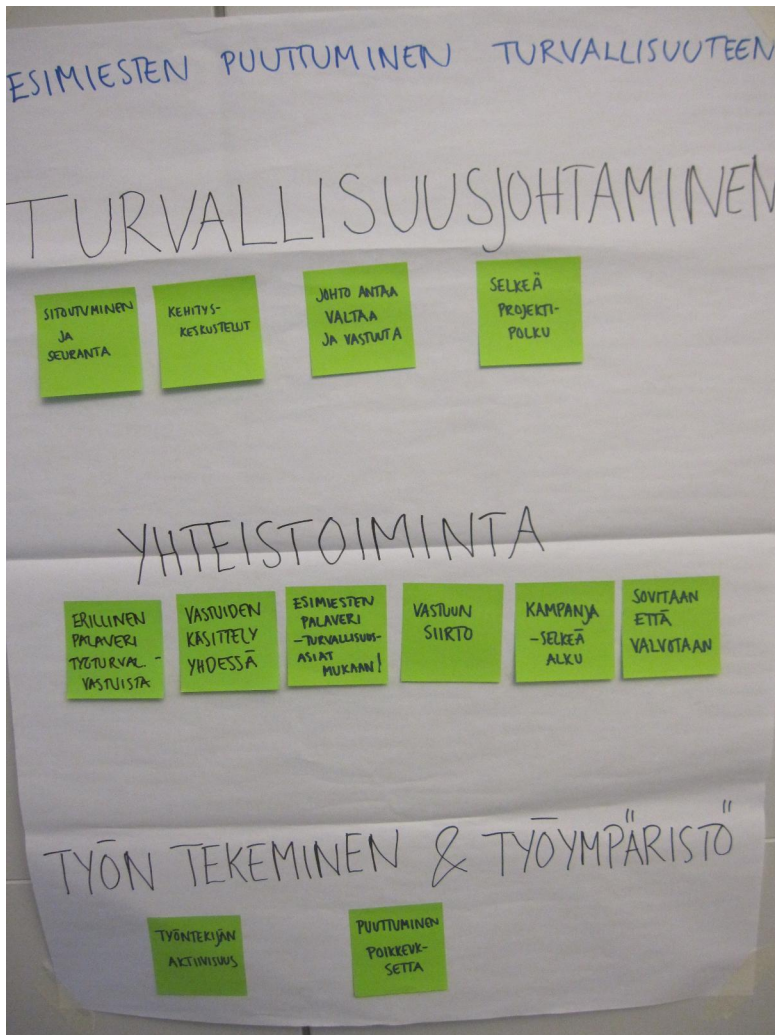 ESIMIESTEN PUUTTUMINEN TURVALLISUUTEEN
TURVALLISUUSJOHTAMINEN
SITOUTUMINEN
JA
SEURANTA
KEHITYS-
KESKUSTELUT
JOHTO ANTAA
VALTAA
JA VASTUUTA
SELKEÄ
PROJEKTI-
POLKU
YHTEISTOIMINTA
ERILLINEN
PALAVERI
TYÖTURVAL-
VASTUISTA
VASTUIDEN
KÄSITTELY
YHDESSÄ
ESIMIESTEN
PALAVERI
-TURVALLISUUS-
ASIAT
MUKAAN!
VASTUUN
SIIRTO
KAMPANJA
-SELKEÄ
ALKU
SOVITAAN
ETTÄ
VALVOTAAN
TYÖN TEKEMINEN & TYÖYMPÄRISTÖ
TYÖNTEKIJÄN
AKTIIVISUUS
PUUTTUMINEN
POIKKEUK-
SETTA